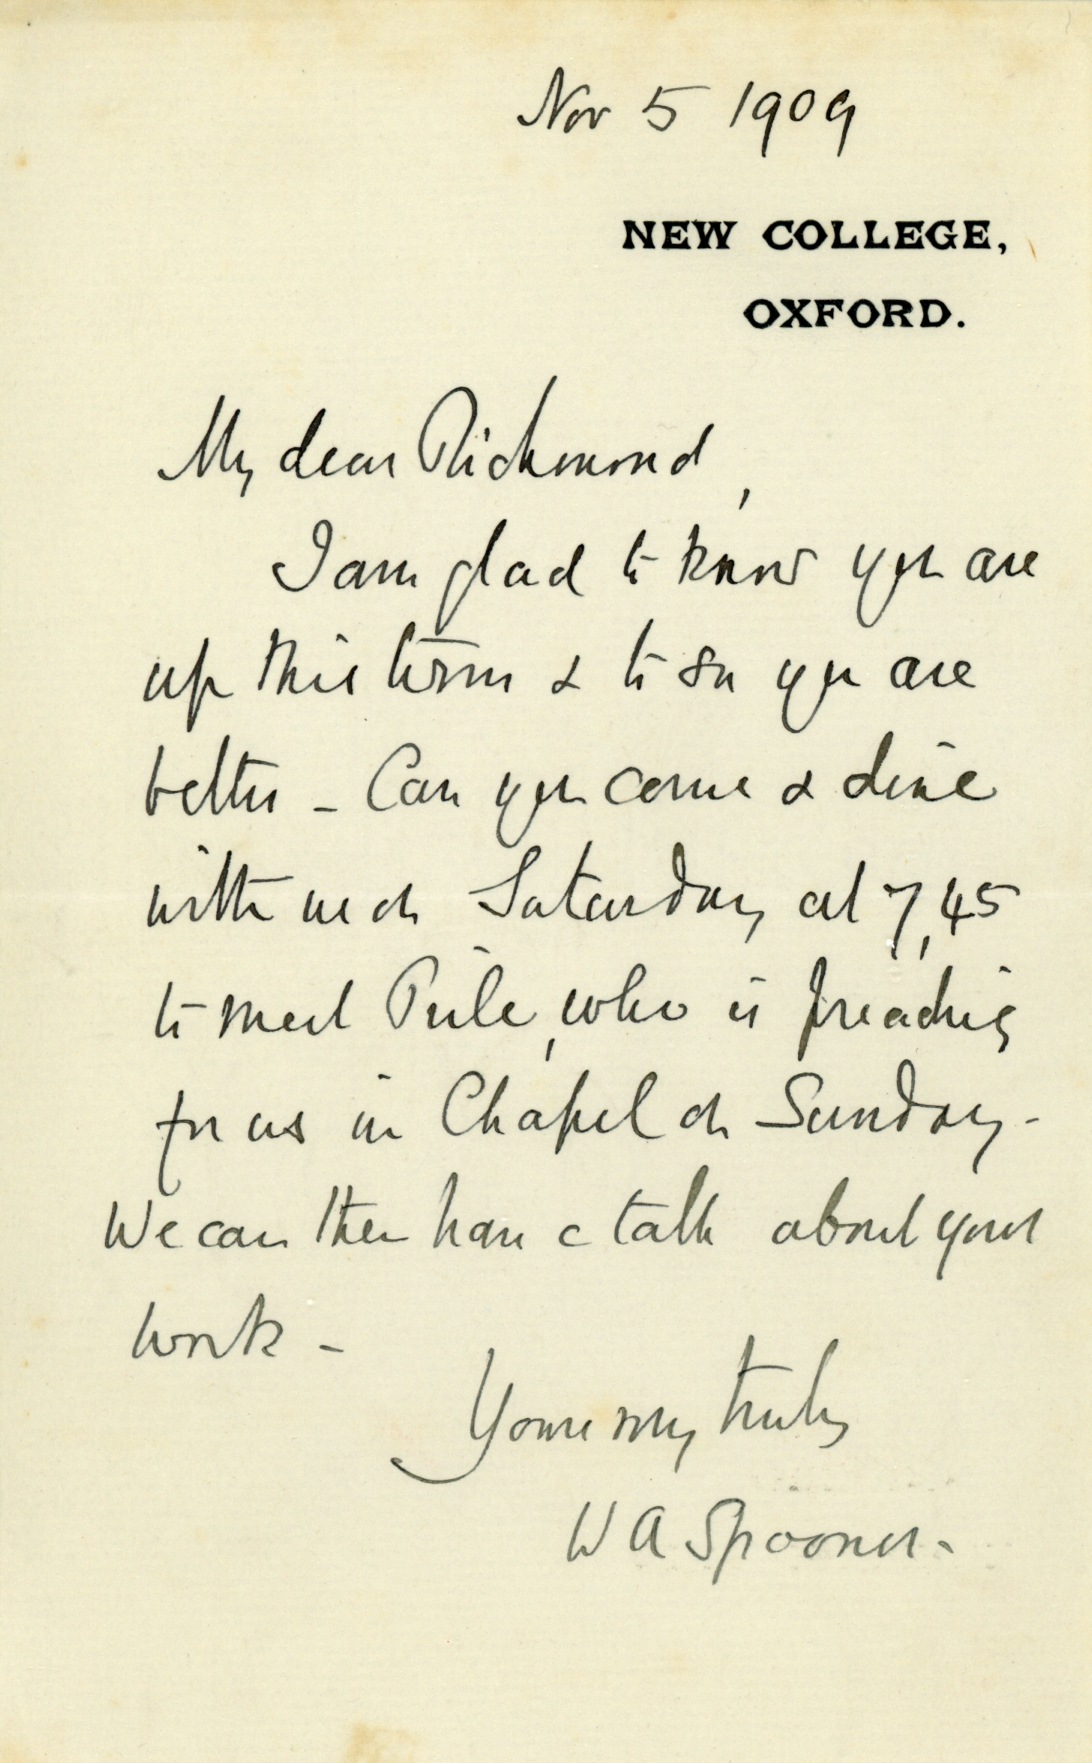 Nov 5 1909
NEW COLLEGE,
OXFORD.
My dear Richmond,
I am glad to know you are
up this term & to see you are
better – Can you come & dine
with us on Saturday at 7,45
to meet Peile, who is preaching
for us in Chapel on Sunday –
We can then have a talk about your
work –
Yours very truly
W A Spooner –